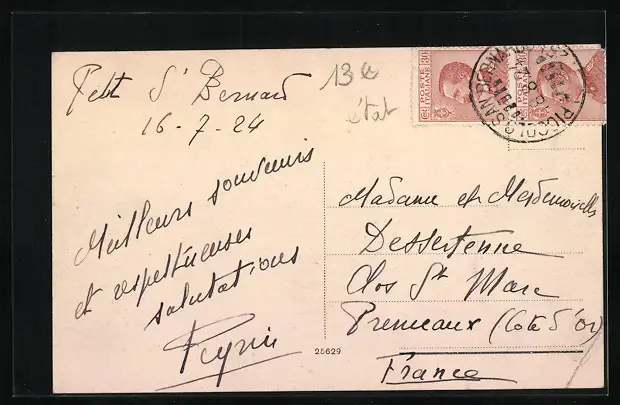 Petit St Bernard
16-7-24
13e
état
Meilleurs souvenirs
et respectueuses
salutations
POSTE
ITALIANE
30
PICCOLO SAN BERNARDO
Madame et Mesdemoiselles
Dessertenne
Clos St Marc
Premeaux (Cote d'Or)
France
25629